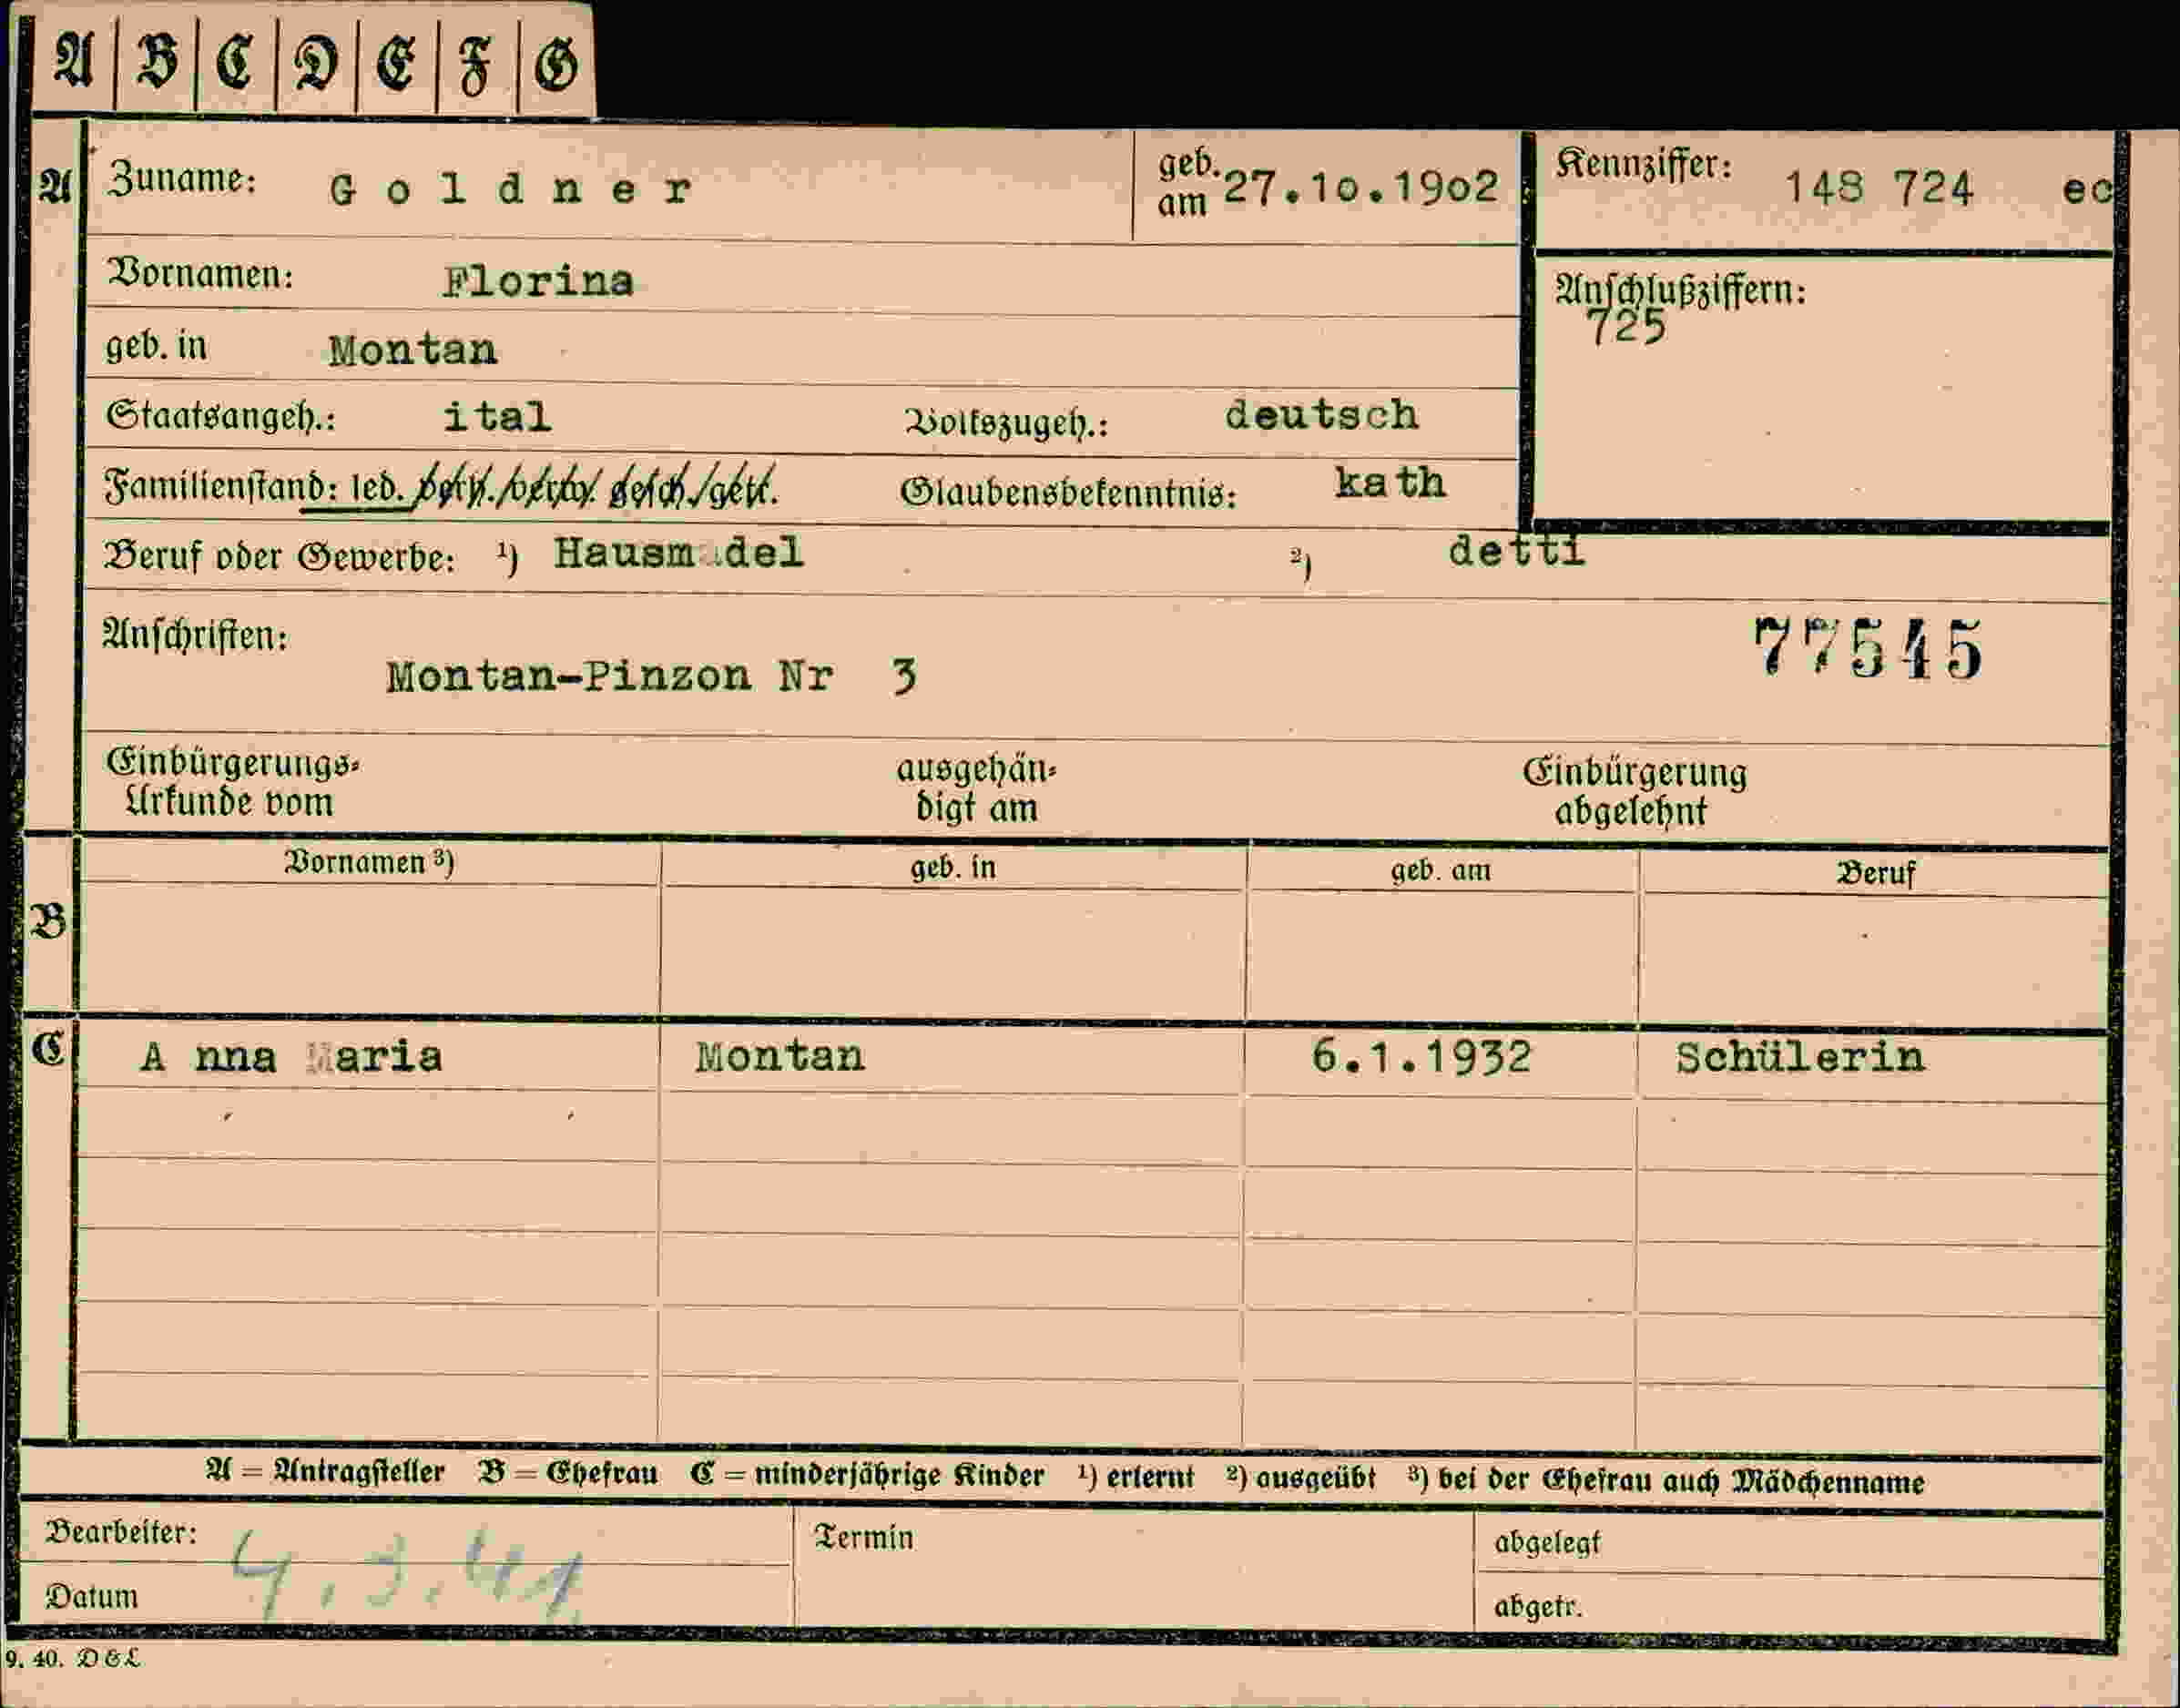 A B C D E F G
A Zuname: Goldner geb. am 27.10.1902 Kennziffer: 148 724 ec
Vornamen: Florina Anschlußziffern:
725
geb. in Montan
Staatsangeh.: ital Volkszugeh.: deutsch
Familienstand: led. verh. verw. gesch. getr. Glaubensbekenntnis: kath
Beruf oder Gewerbe: ¹) Hausm del ²) detti
Anschriften: 77545
Montan-Pinzon Nr 3
Einbürgerungs- ausgehän- Einbürgerung
Urkunde vom digt am abgelehnt
Vornamen ³) geb. in geb. am Beruf
B
C A nna Maria Montan 6.1.1932 Schülerin
A = Antragsteller B = Ehefrau C = minderjährige Kinder ¹) erlernt ²) ausgeübt ³) bei der Ehefrau auch Mädchenname
Bearbeiter: Termin abgelegt
4.3.41
Datum abgetr.
9. 40. D & L